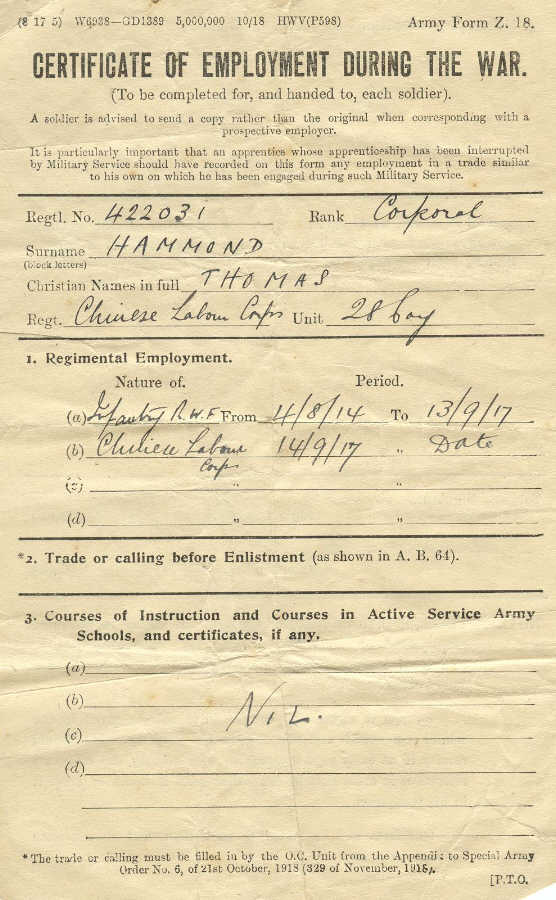 (8 17 5) W6938—GD1389 5,000,000 10/18 HWV(P598) Army Form Z. 18.
CERTIFICATE OF EMPLOYMENT DURING THE WAR.
(To be completed for, and handed to, each soldier).
A soldier is advised to send a copy rather than the original when corresponding with a
prospective employer.
It is particularly important that an apprentice whose apprenticeship has been interrupted
by Military Service should have recorded on this form any employment in a trade similar
to his own on which he has been engaged during such Military Service.
Regtl. No. 422031 Rank Corporal
Surname HAMMOND
(block letters)
Christian Names in full THOMAS
Regt. Chinese Labour Corps Unit 28 Coy
1. Regimental Employment.
Nature of. Period.
(a) Infantry R.W.F. From 4/8/14 To 13/9/17
(b) Chinese Labour 14/9/17 „ Date
Corps
(c) „ „
(d) „ „
*2. Trade or calling before Enlistment (as shown in A. B. 64).
3. Courses of Instruction and Courses in Active Service Army
Schools, and certificates, if any.
(a)
(b) Nil.
(c)
(d)
*The trade or calling must be filled in by the O.C. Unit from the Appendix to Special Army
Order No. 6, of 21st October, 1918 (329 of November, 1918).
[P.T.O.